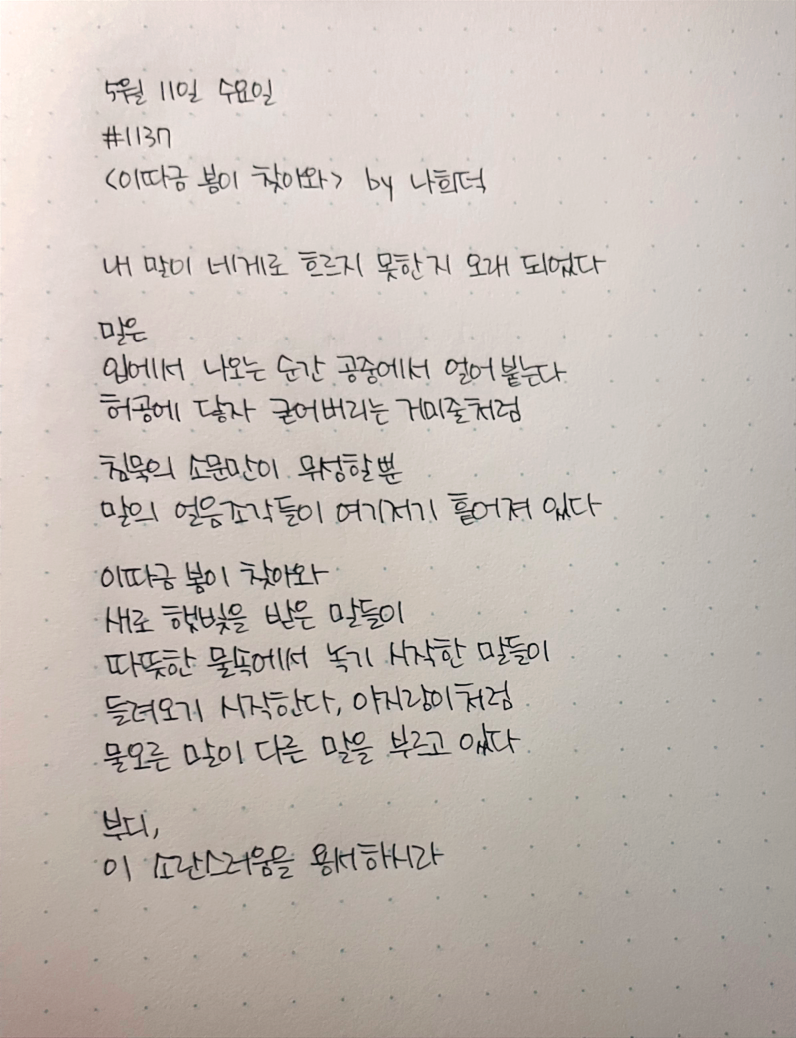 5월 11일 수요일
#1137
<이따금 봄이 찾아와> by 나희덕
내 말이 네게로 흐르지 못한지 오래 되었다
말은
입에서 나오는 순간 공중에서 얼어붙는다
허공에 닿자 굳어버리는 거미줄처럼
침묵의 소문만이 무성할뿐
말의 얼음조각들이 여기저기 흩어져 있다
이따금 봄이 찾아와
새로 햇빛을 받은 말들이
따뜻한 물속에서 녹기 시작한 말들이
들려오기 시작한다, 아지랑이처럼
물오른 말이 다른 말을 부르고 있다
부디,
이 소란스러움을 용서하시라